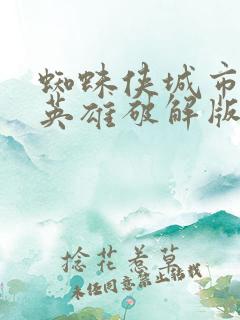 蜘蛛侠城市
英雄破解版
捻花惹草
未经同意禁止转载